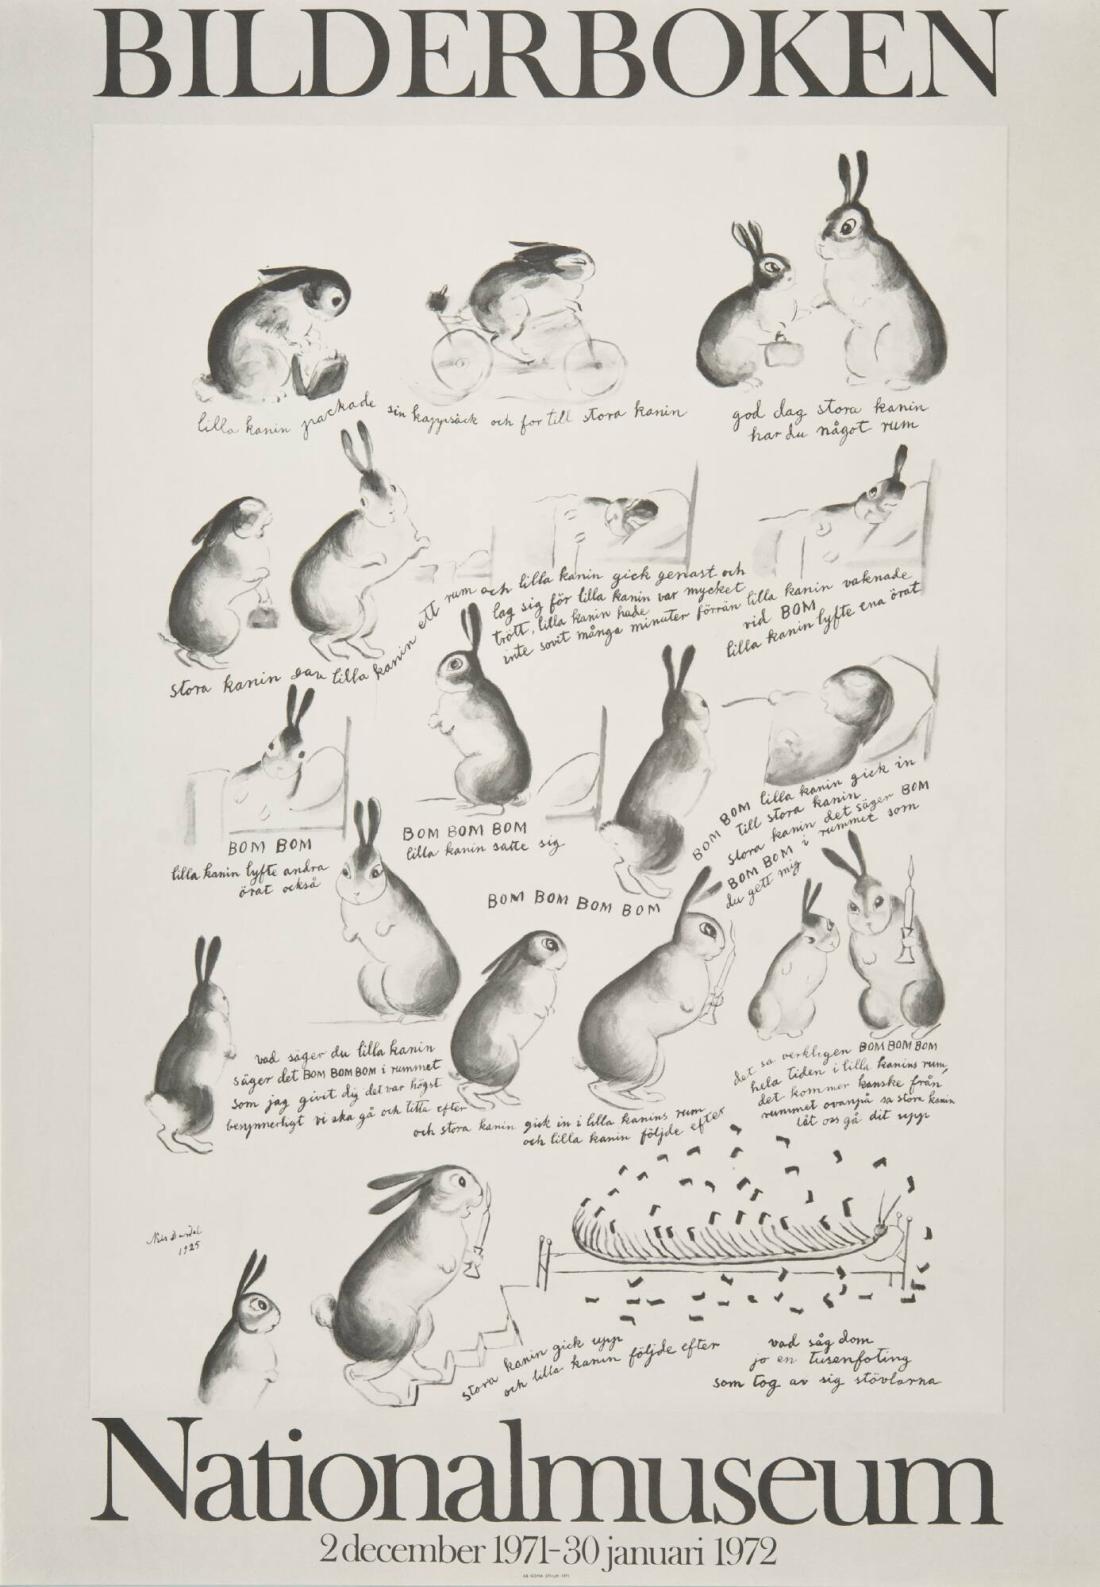 BILDERBOKEN
lilla kanin packade sin kappsäck och for till stora kanin
god dag stora kanin
har du något rum
stora kanin gav lilla kanin ett rum och lilla kanin gick genast och
lag sig för lilla kanin var mycket
trött, lilla kanin hade
inte sovit många minuter förrän lilla kanin vaknade
vid BOM
lilla kanin lyfte ena örat
BOM BOM
lilla kanin lyfte andra
örat också
BOM BOM BOM
lilla kanin satte sig
BOM BOM BOM BOM
BOM BOM lilla kanin gick in
till stora kanin
stora kanin det säger BOM
BOM BOM i rummet som
du gett mig
vad säger du lilla kanin
säger det BOM BOM BOM i rummet
som jag givit dig det var högst
besynnerligt vi ska gå och titta efter
och stora kanin gick in i lilla kanins rum
och lilla kanin följde efter
det sa verkligen BOM BOM BOM
hela tiden i lilla kanins rum,
det kommer kanske från
rummet ovanpå sa stora kanin
låt oss gå dit upp
Nils Dardel
1925
stora kanin gick upp
och lilla kanin följde efter
vad såg dom
jo en tusenfoting
som tog av sig stövlarna
Nationalmuseum
2 december 1971-30 januari 1972